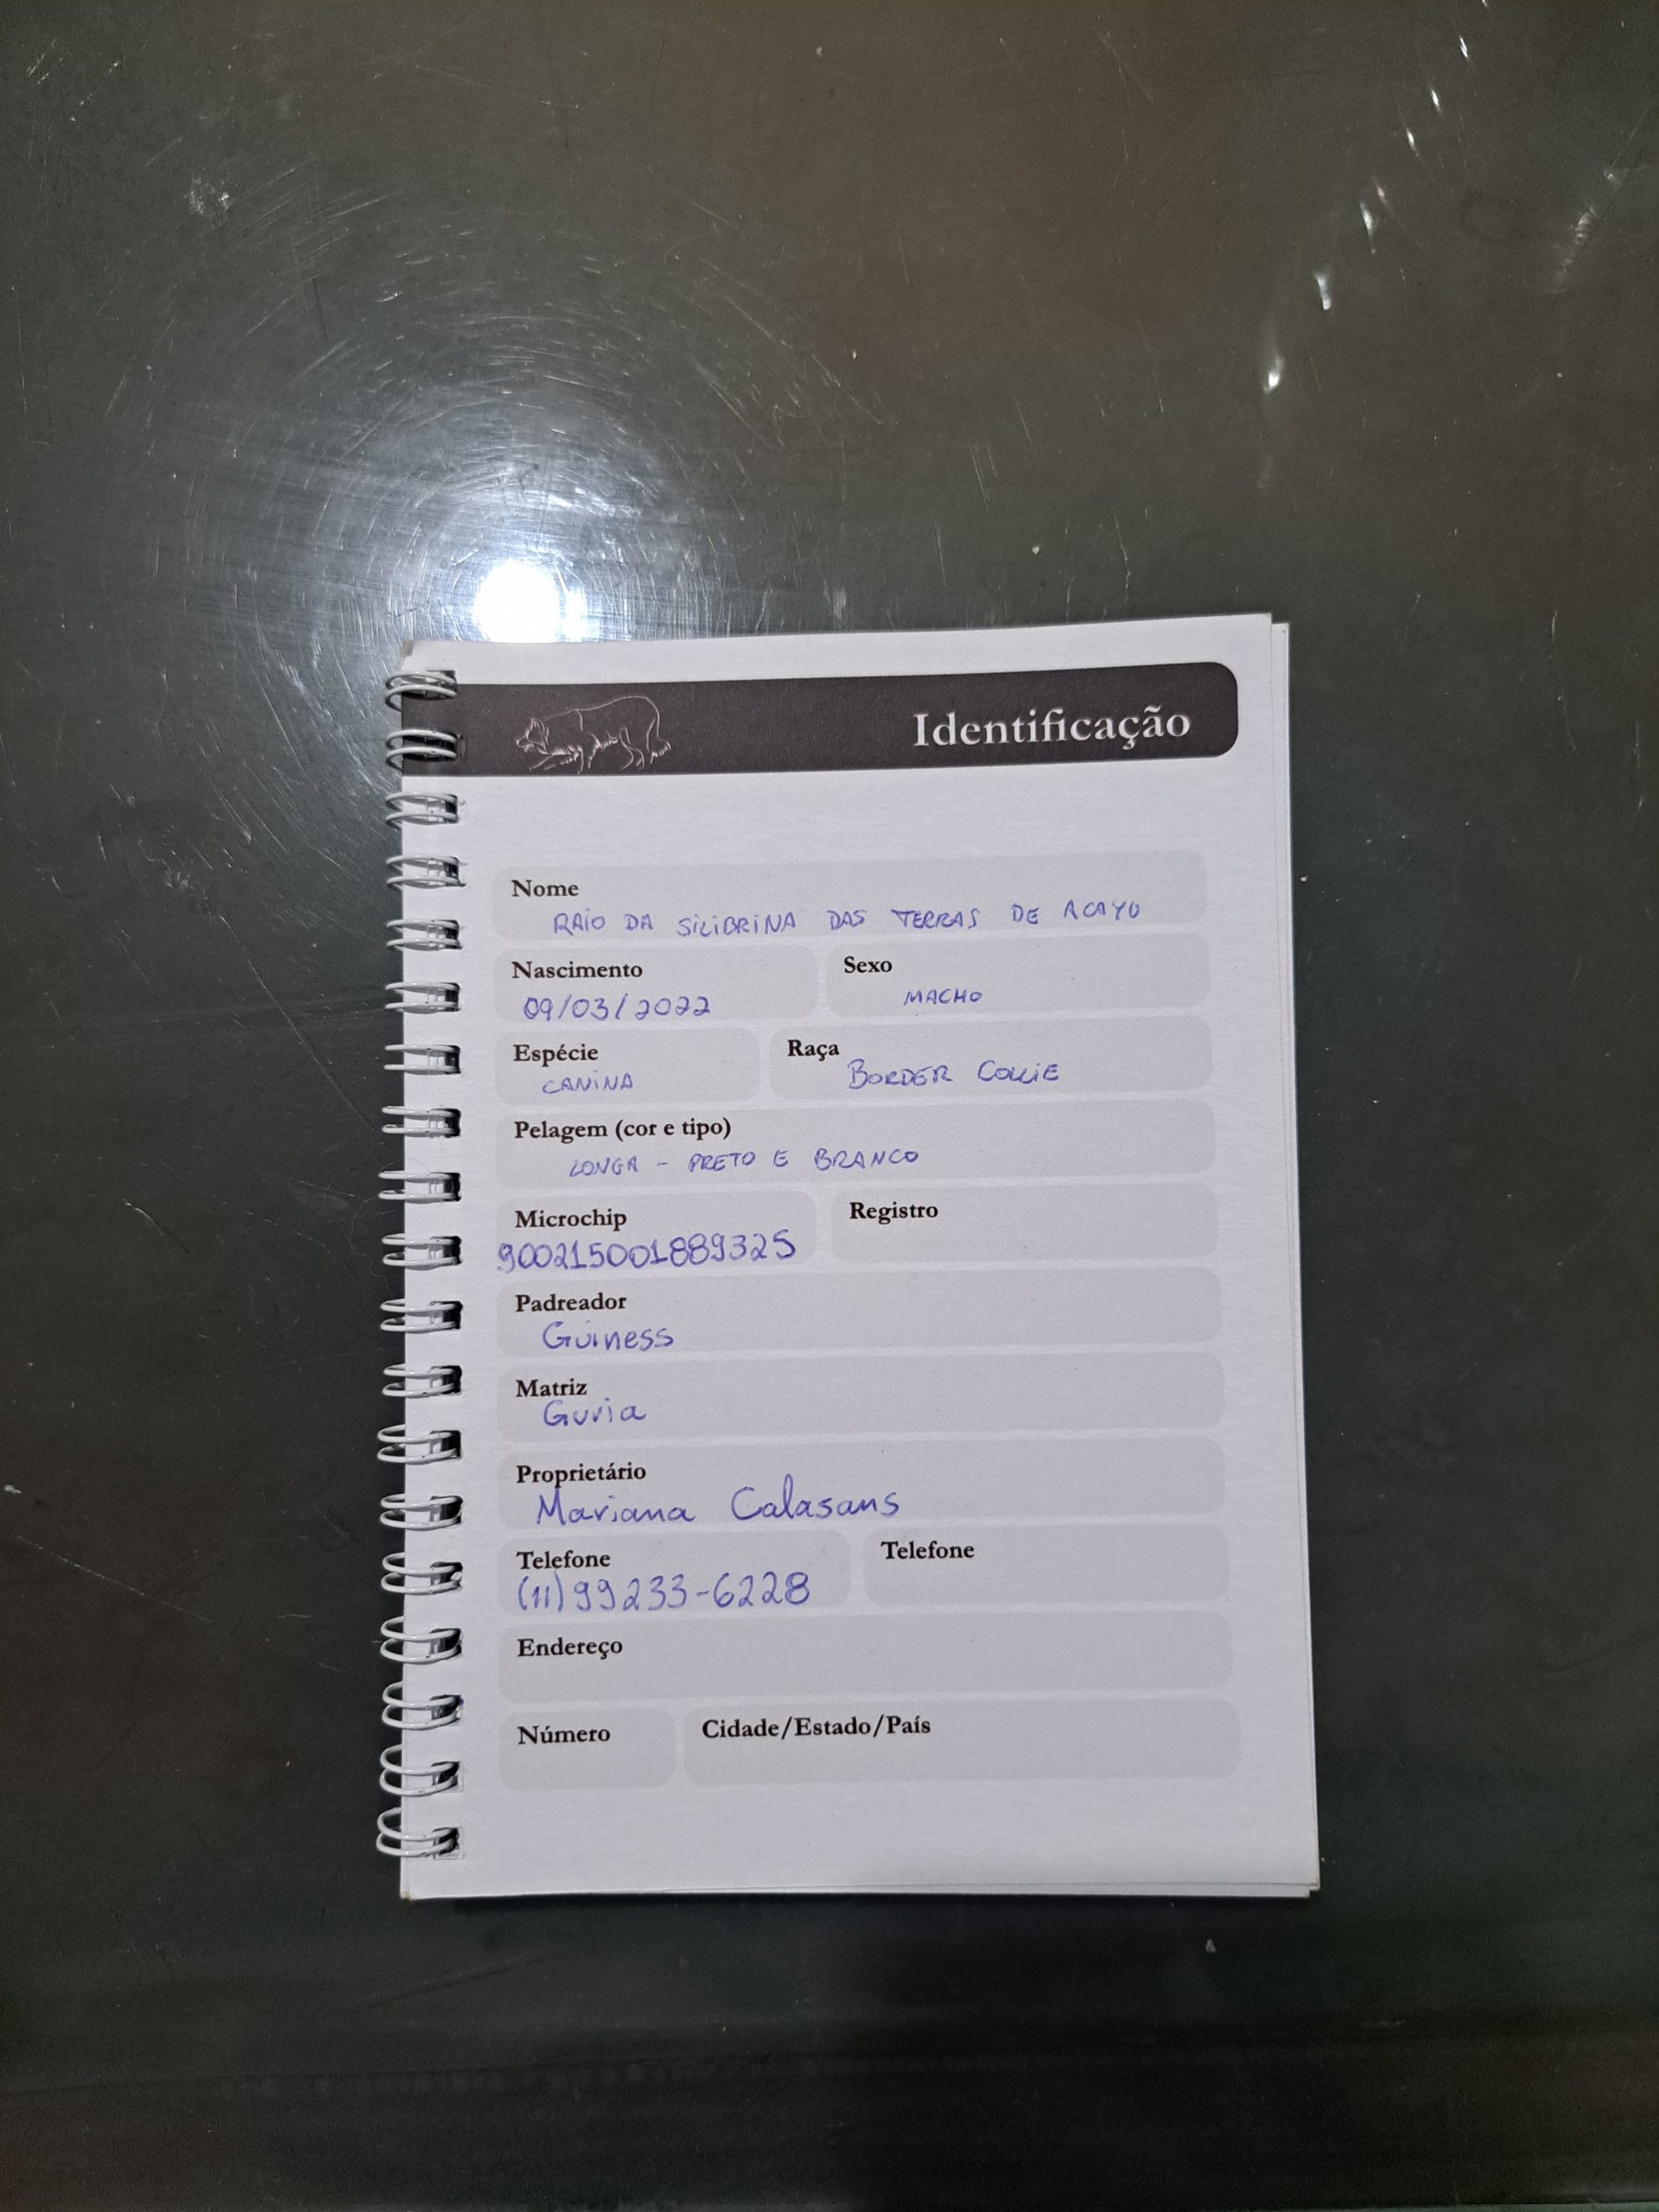 Identificação
Nome
RAIO DA SILIBRINA DAS TERRAS DE ACAYU
Nascimento Sexo
09/03/2022 MACHO
Espécie Raça
CANINA BORDER COLLIE
Pelagem (cor e tipo)
LONGA - PRETO E BRANCO
Microchip Registro
900215001889325
Padreador
Guiness
Matriz
Guria
Proprietário
Mariana Calasans
Telefone Telefone
(11) 99233-6228
Endereço
Número Cidade/Estado/País